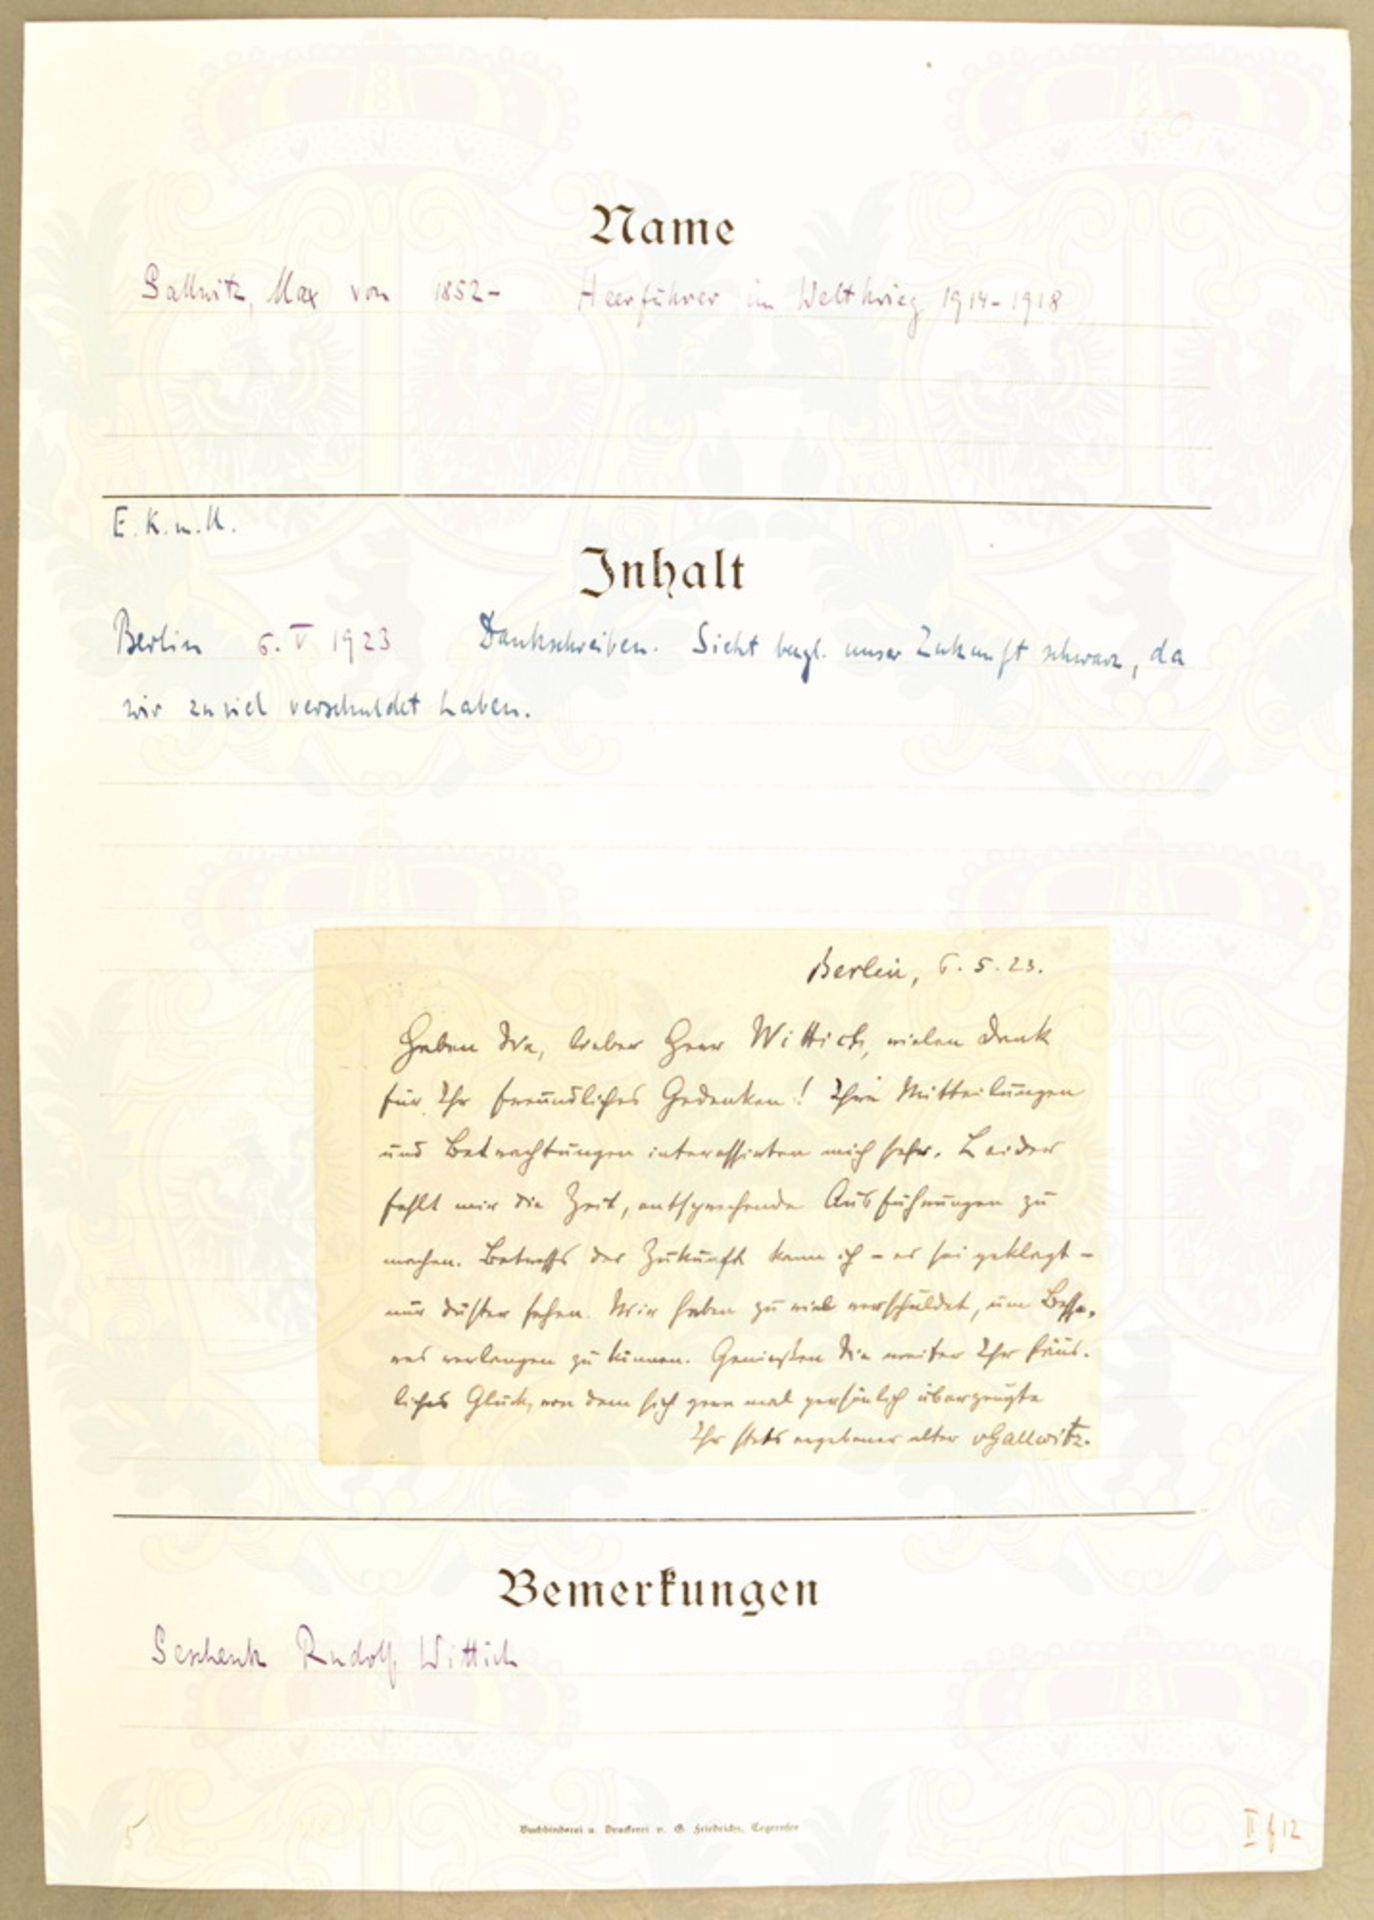 Name
Gallwitz, Max von 1852- Heerführer im Weltkrieg 1914-1918
E.K.m.U.
Inhalt
Berlin 6. V 1923 Dankschreiben. Sieht bezgl. unser Zukunft schwarz, da
wir zuviel verschuldet haben.
Berlin, 6.5.23.
Haben Sie, lieber Herr Wittich, vielen Dank
für Ihr freundliches Gedenken! Ihre Mitteilungen
und Betrachtungen interessirten mich sehr. Leider
fehlt mir die Zeit, entsprechende Ausführungen zu
machen. Betreffs der Zukunft kann ich - es sei geklagt -
nur düster sehen. Wir haben zu viel verschuldet, um Besse-
res verlangen zu können. Genießen Sie weiter Ihr häus-
liches Glück, von dem sich gern mal persönlich überzeugte
Ihr stets ergebener alter vGallwitz.
Bemerkungen
Geschenk Rudolf Wittich
5
Buchbinderei u. Druckerei v. G. Friedrichs, Tegernsee
II f 12